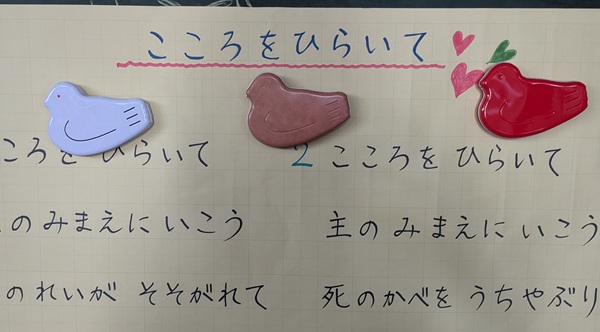 こころをひらいて
ころを ひらいて
のみまえに いこう
のれいが そそがれて
2 こころを ひらいて
主の みまえに いこう
死のかべを うちやぶり